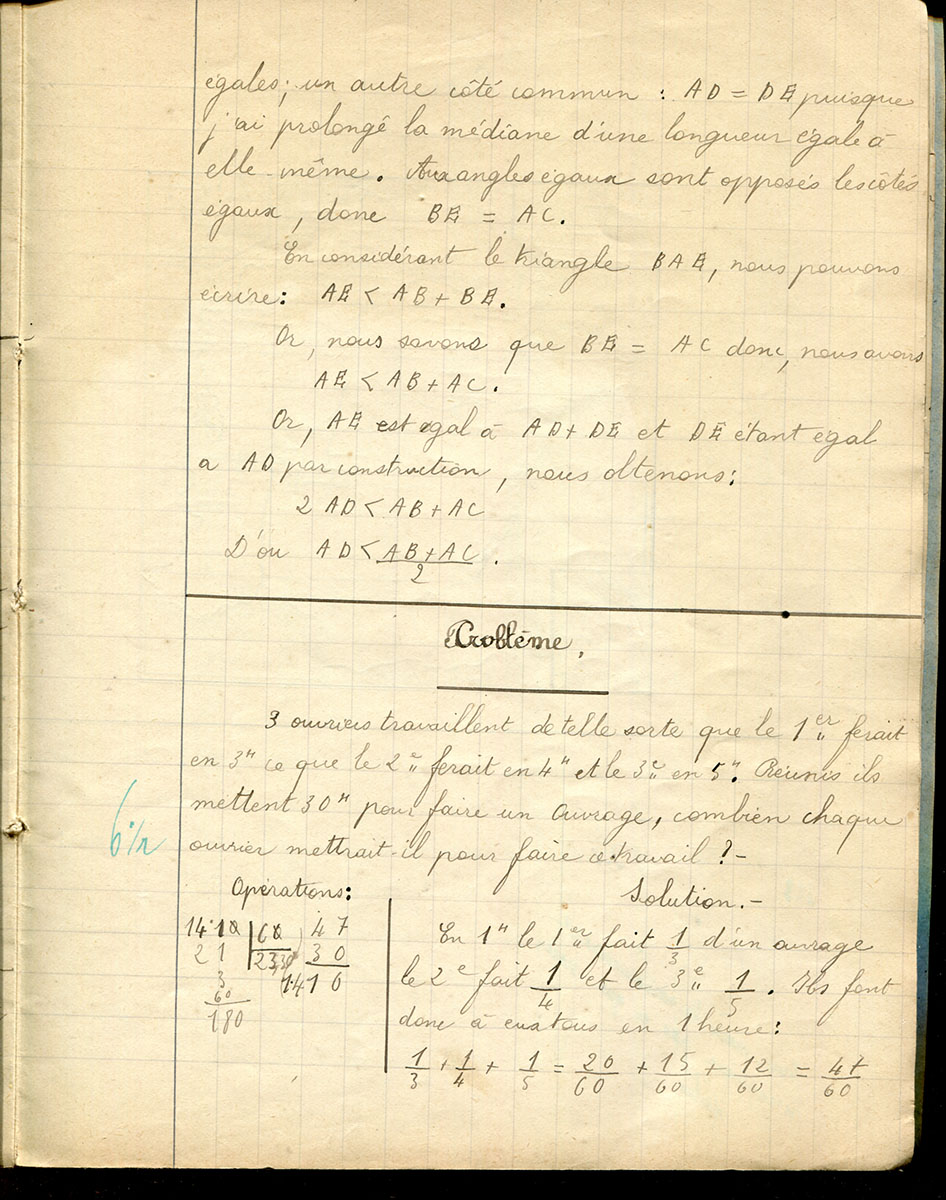 égales; un autre côté commun : AD = DE puisque
j'ai prolongé la médiane d'une longueur égale à
elle-même. Aux angles égaux sont opposés les côtés
égaux, donc BE = AC.
En considérant le triangle BAE, nous pouvons
écrire: AE < AB + BE.
Or, nous savons que BE = AC donc, nous avons
AE < AB + AC.
Or, AE est égal à AD + DE et DE étant égal
a AD par construction, nous obtenons:
2 AD < AB + AC
D'ou AD < AB + AC / 2 .
Problème.
3 ouvriers travaillent de telle sorte que le 1er ferait
en 3h ce que le 2e ferait en 4h et le 3e en 5h. Réunis ils
mettent 30h pour faire un ouvrage, combien chaque
ouvrier mettrait-il pour faire ce travail ? -
Opérations:
1410 | 60
21 | 23,30
3
60
180
47
30
1410
Solution. -
En 1h le 1er fait 1/3 d'un ouvrage
le 2e fait 1/4 et le 3e 1/5 . Ils font
donc à eux tous en 1 heure:
1/3 + 1/4 + 1/5 = 20/60 + 15/60 + 12/60 = 47/60